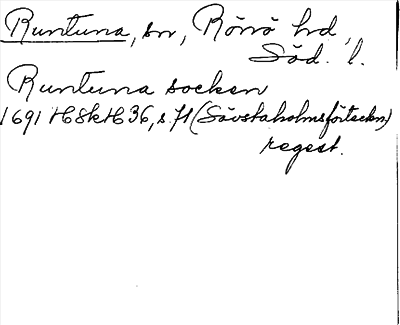 Runtuna, sn, Rönö hrd,
Söd. l.
Runtuna socken
1691 HSkH 36, s. 71 (Sävstaholmsförteckn)
regest.